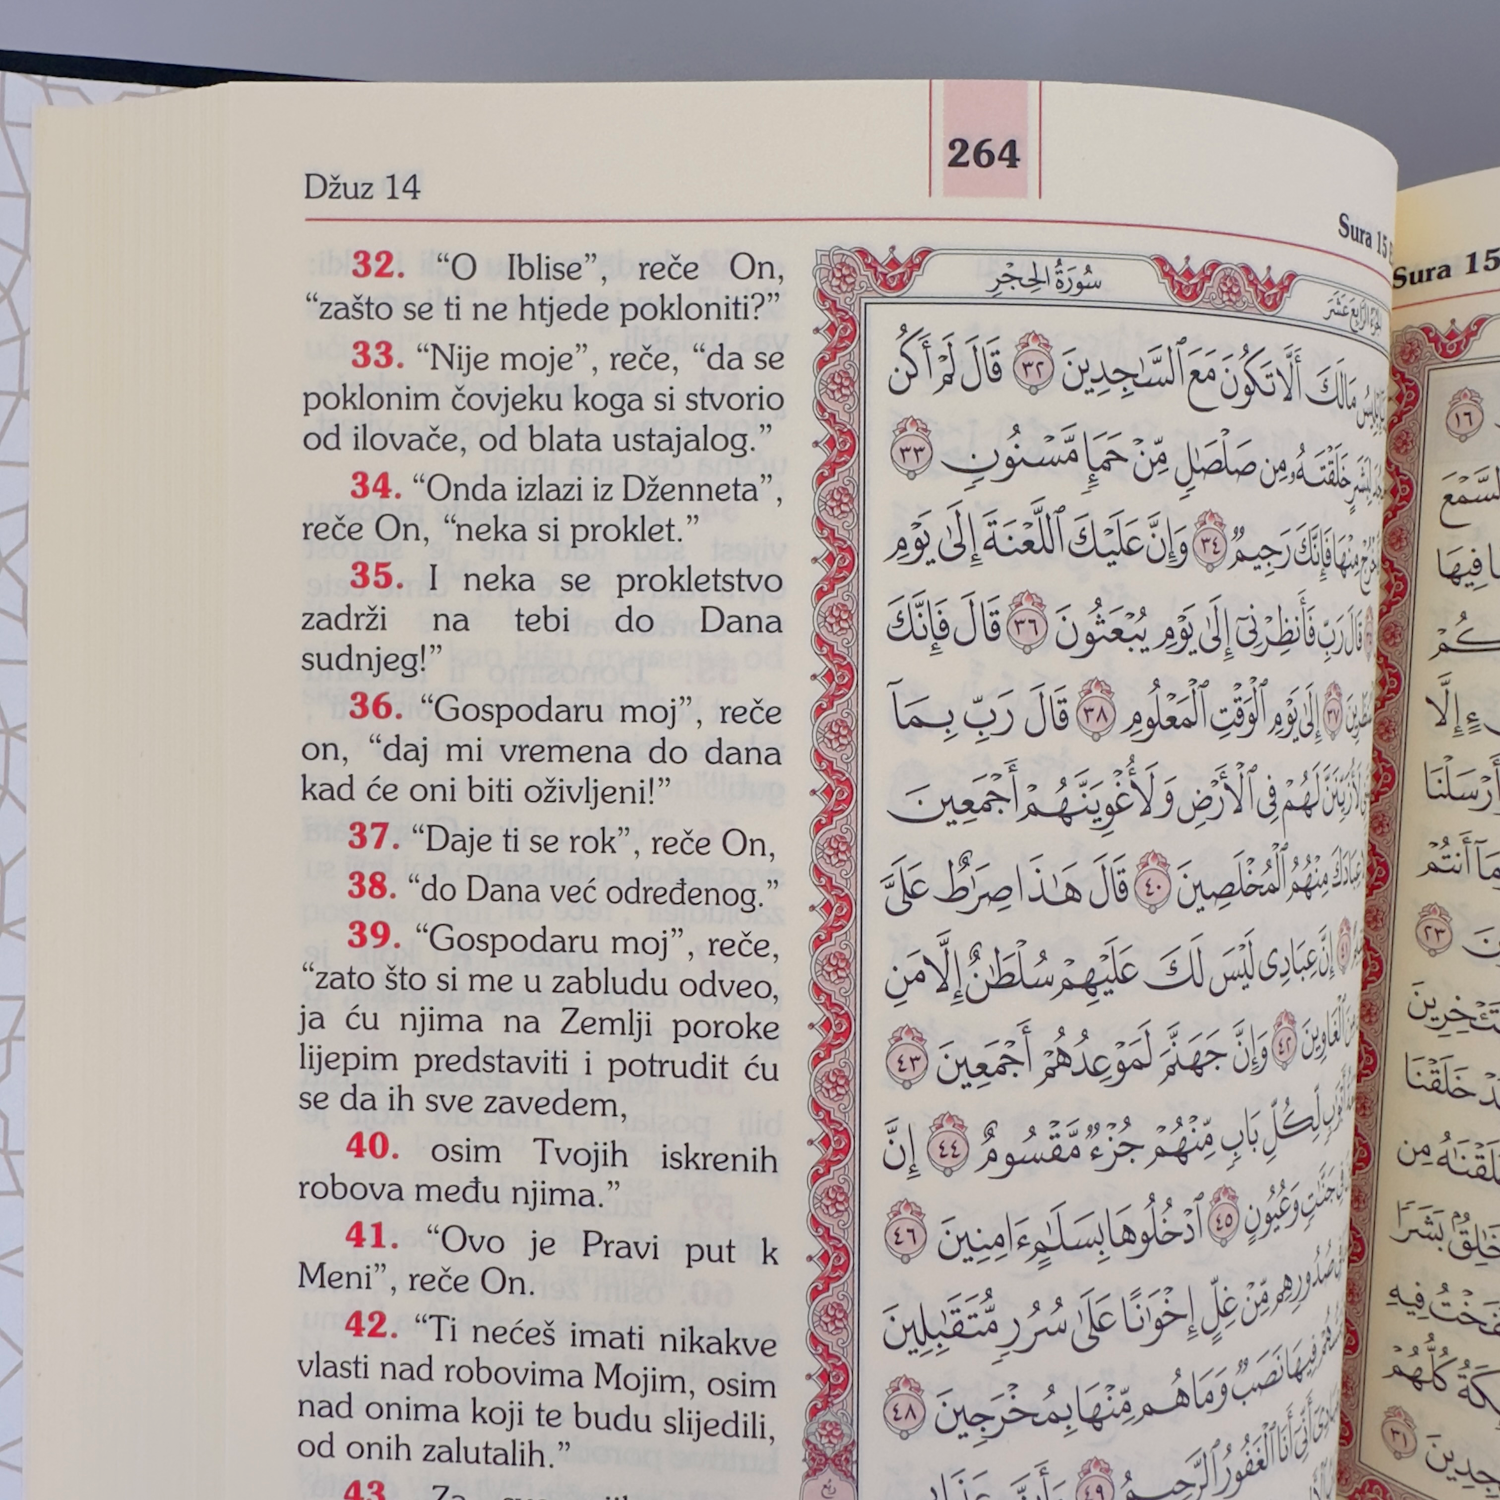 264
Džuz 14
Sura 15
32. “O Iblise”, reče On,
“zašto se ti ne htjede pokloniti?”
33. “Nije moje”, reče, “da se
poklonim čovjeku koga si stvorio
od ilovače, od blata ustajalog.”
34. “Onda izlazi iz Dženneta”,
reče On, “neka si proklet.”
35. I neka se prokletstvo
zadrži na tebi do Dana
sudnjeg!”
36. “Gospodaru moj”, reče
on, “daj mi vremena do dana
kad će oni biti oživljeni!”
37. “Daje ti se rok”, reče On,
38. “do Dana već određenog.”
39. “Gospodaru moj”, reče,
“zato što si me u zabludu odveo,
ja ću njima na Zemlji poroke
lijepim predstaviti i potrudit ću
se da ih sve zavedem,
40. osim Tvojih iskrenih
robova među njima.”
41. “Ovo je Pravi put k
Meni”, reče On.
42. “Ti nećeš imati nikakve
vlasti nad robovima Mojim, osim
nad onima koji te budu slijedili,
od onih zalutalih.”
43.
سُورَةُ الحِجْرِ
الجُزْءُ الرَّابِعَ عَشَرَ
مَالَكَ أَلَّا تَكُونَ مَعَ ٱلسَّٰجِدِينَ ٣٢ قَالَ لَمْ أَكُن
خَلَقْتَهُۥ مِن صَلْصَٰلٍ مِّنْ حَمَإٍ مَّسْنُونٍ ٣٣
مِنْهَا فَإِنَّكَ رَجِيمٌ ٣٤ وَإِنَّ عَلَيْكَ ٱللَّعْنَةَ إِلَىٰ يَوْمِ
قَالَ رَبِّ فَأَنظِرْنِىٓ إِلَىٰ يَوْمِ يُبْعَثُونَ ٣٦ قَالَ فَإِنَّكَ
٣٧ إِلَىٰ يَوْمِ ٱلْوَقْتِ ٱلْمَعْلُومِ ٣٨ قَالَ رَبِّ بِمَآ
لَأُزَيِّنَنَّ لَهُمْ فِى ٱلْأَرْضِ وَلَأُغْوِيَنَّهُمْ أَجْمَعِينَ
عِبَادَكَ مِنْهُمُ ٱلْمُخْلَصِينَ ٤٠ قَالَ هَٰذَا صِرَٰطٌ عَلَىَّ
إِنَّ عِبَادِى لَيْسَ لَكَ عَلَيْهِمْ سُلْطَٰنٌ إِلَّا مَنِ
ٱلْغَاوِينَ ٤٢ وَإِنَّ جَهَنَّمَ لَمَوْعِدُهُمْ أَجْمَعِينَ ٤٣
لِكُلِّ بَابٍ مِّنْهُمْ جُزْءٌ مَّقْسُومٌ ٤٤ إِنَّ
جَنَّٰتٍ وَعُيُونٍ ٤٥ ٱدْخُلُوهَا بِسَلَٰمٍ ءَامِنِينَ ٤٦
صُدُورِهِم مِّنْ غِلٍّ إِخْوَٰنًا عَلَىٰ سُرُرٍ مُّتَقَٰبِلِينَ
فِيهَا نَصَبٌ وَمَا هُم مِّنْهَا بِمُخْرَجِينَ ٤٨
أَنِّىٓ أَنَا ٱلْغَفُورُ ٱلرَّحِيمُ ٤٩ وَأَنَّ
Sura 15
١٦
فِيهَا
إِلَّا
أَرْسَلْنَا
أَنتُمْ
٢٣
خَلَقْنَا
مِن
بَشَرًا
فِيهِ
كُلُّهُمْ
٣١